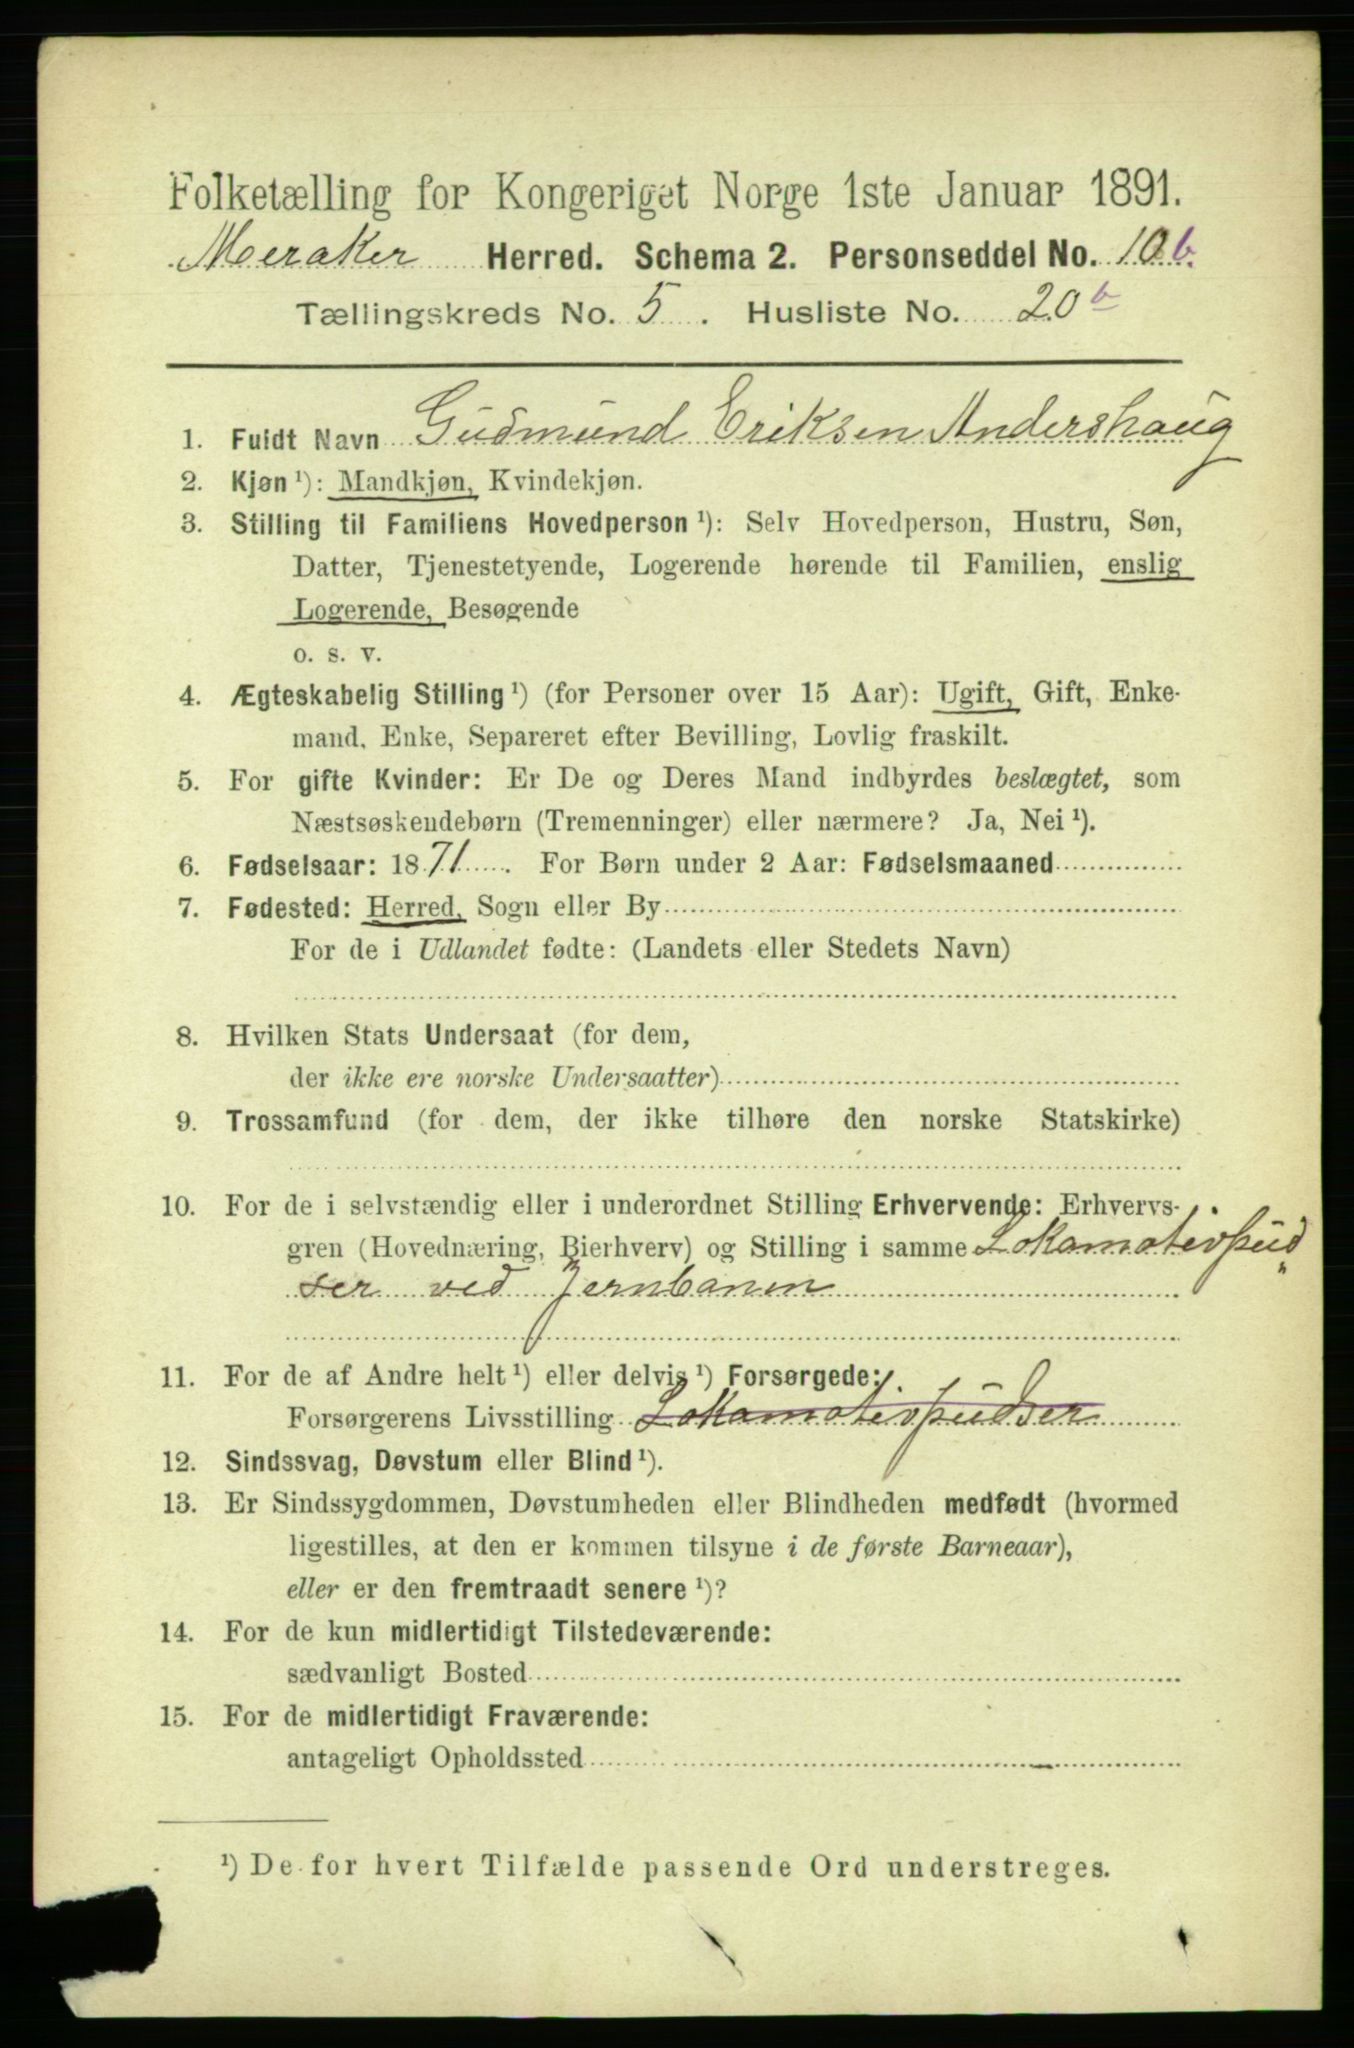 Folketælling for Kongeriget Norge 1ste Januar 1891.
Meraker Herred. Schema 2. Personseddel No. 10 b.
Tællingskreds No. 5. Husliste No. 20 b
1. Fuldt Navn Gudmund Eriksen Andershaug
2. Kjøn ¹): Mandkjøn, Kvindekjøn.
3. Stilling til Familiens Hovedperson ¹): Selv Hovedperson, Hustru, Søn,
Datter, Tjenestetyende, Logerende hørende til Familien, enslig
Logerende, Besøgende
o. s. v.
4. Ægteskabelig Stilling ¹) (for Personer over 15 Aar): Ugift, Gift, Enke-
mand, Enke, Separeret efter Bevilling, Lovlig fraskilt.
5. For gifte Kvinder: Er De og Deres Mand indbyrdes beslægtet, som
Næstsøskendebørn (Tremenninger) eller nærmere? Ja, Nei ¹).
6. Fødselsaar: 1871. For Børn under 2 Aar: Fødselsmaaned
7. Fødested: Herred, Sogn eller By
For de i Udlandet fødte: (Landets eller Stedets Navn)
8. Hvilken Stats Undersaat (for dem,
der ikke ere norske Undersaatter)
9. Trossamfund (for dem, der ikke tilhøre den norske Statskirke)
10. For de i selvstændig eller i underordnet Stilling Erhvervende: Erhvervs-
gren (Hovednæring, Bierhverv) og Stilling i samme Lokamotivpud
ser ved Jernbanen
11. For de af Andre helt ¹) eller delvis ¹) Forsørgede:
Forsørgerens Livsstilling Lokamotivpudser
12. Sindssvag, Døvstum eller Blind ¹).
13. Er Sindssygdommen, Døvstumheden eller Blindheden medfødt (hvormed
ligestilles, at den er kommen tilsyne i de første Barneaar),
eller er den fremtraadt senere ¹)?
14. For de kun midlertidigt Tilstedeværende:
sædvanligt Bosted
15. For de midlertidigt Fraværende:
antageligt Opholdssted
¹) De for hvert Tilfælde passende Ord understreges.